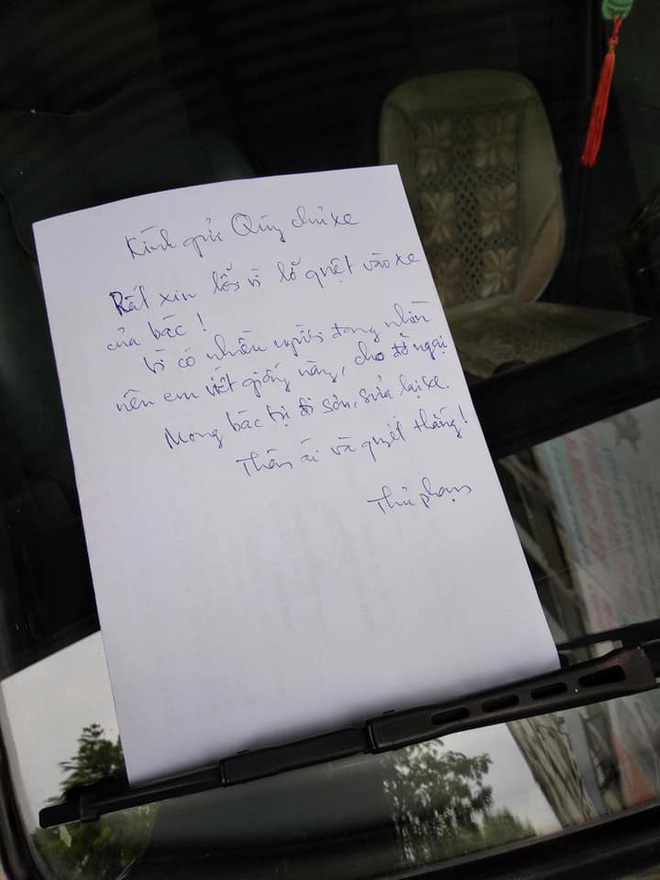 Kính gửi Quý chủ xe
Rất xin lỗi vì lỡ quệt vào xe
của bác!
Vì có nhiều người đang nhìn
nên em viết giấy này, cho đỡ ngại
Mong bác tự đi sơn, sửa lại xe.
Thân ái và quyết thắng!
Thủ phạm